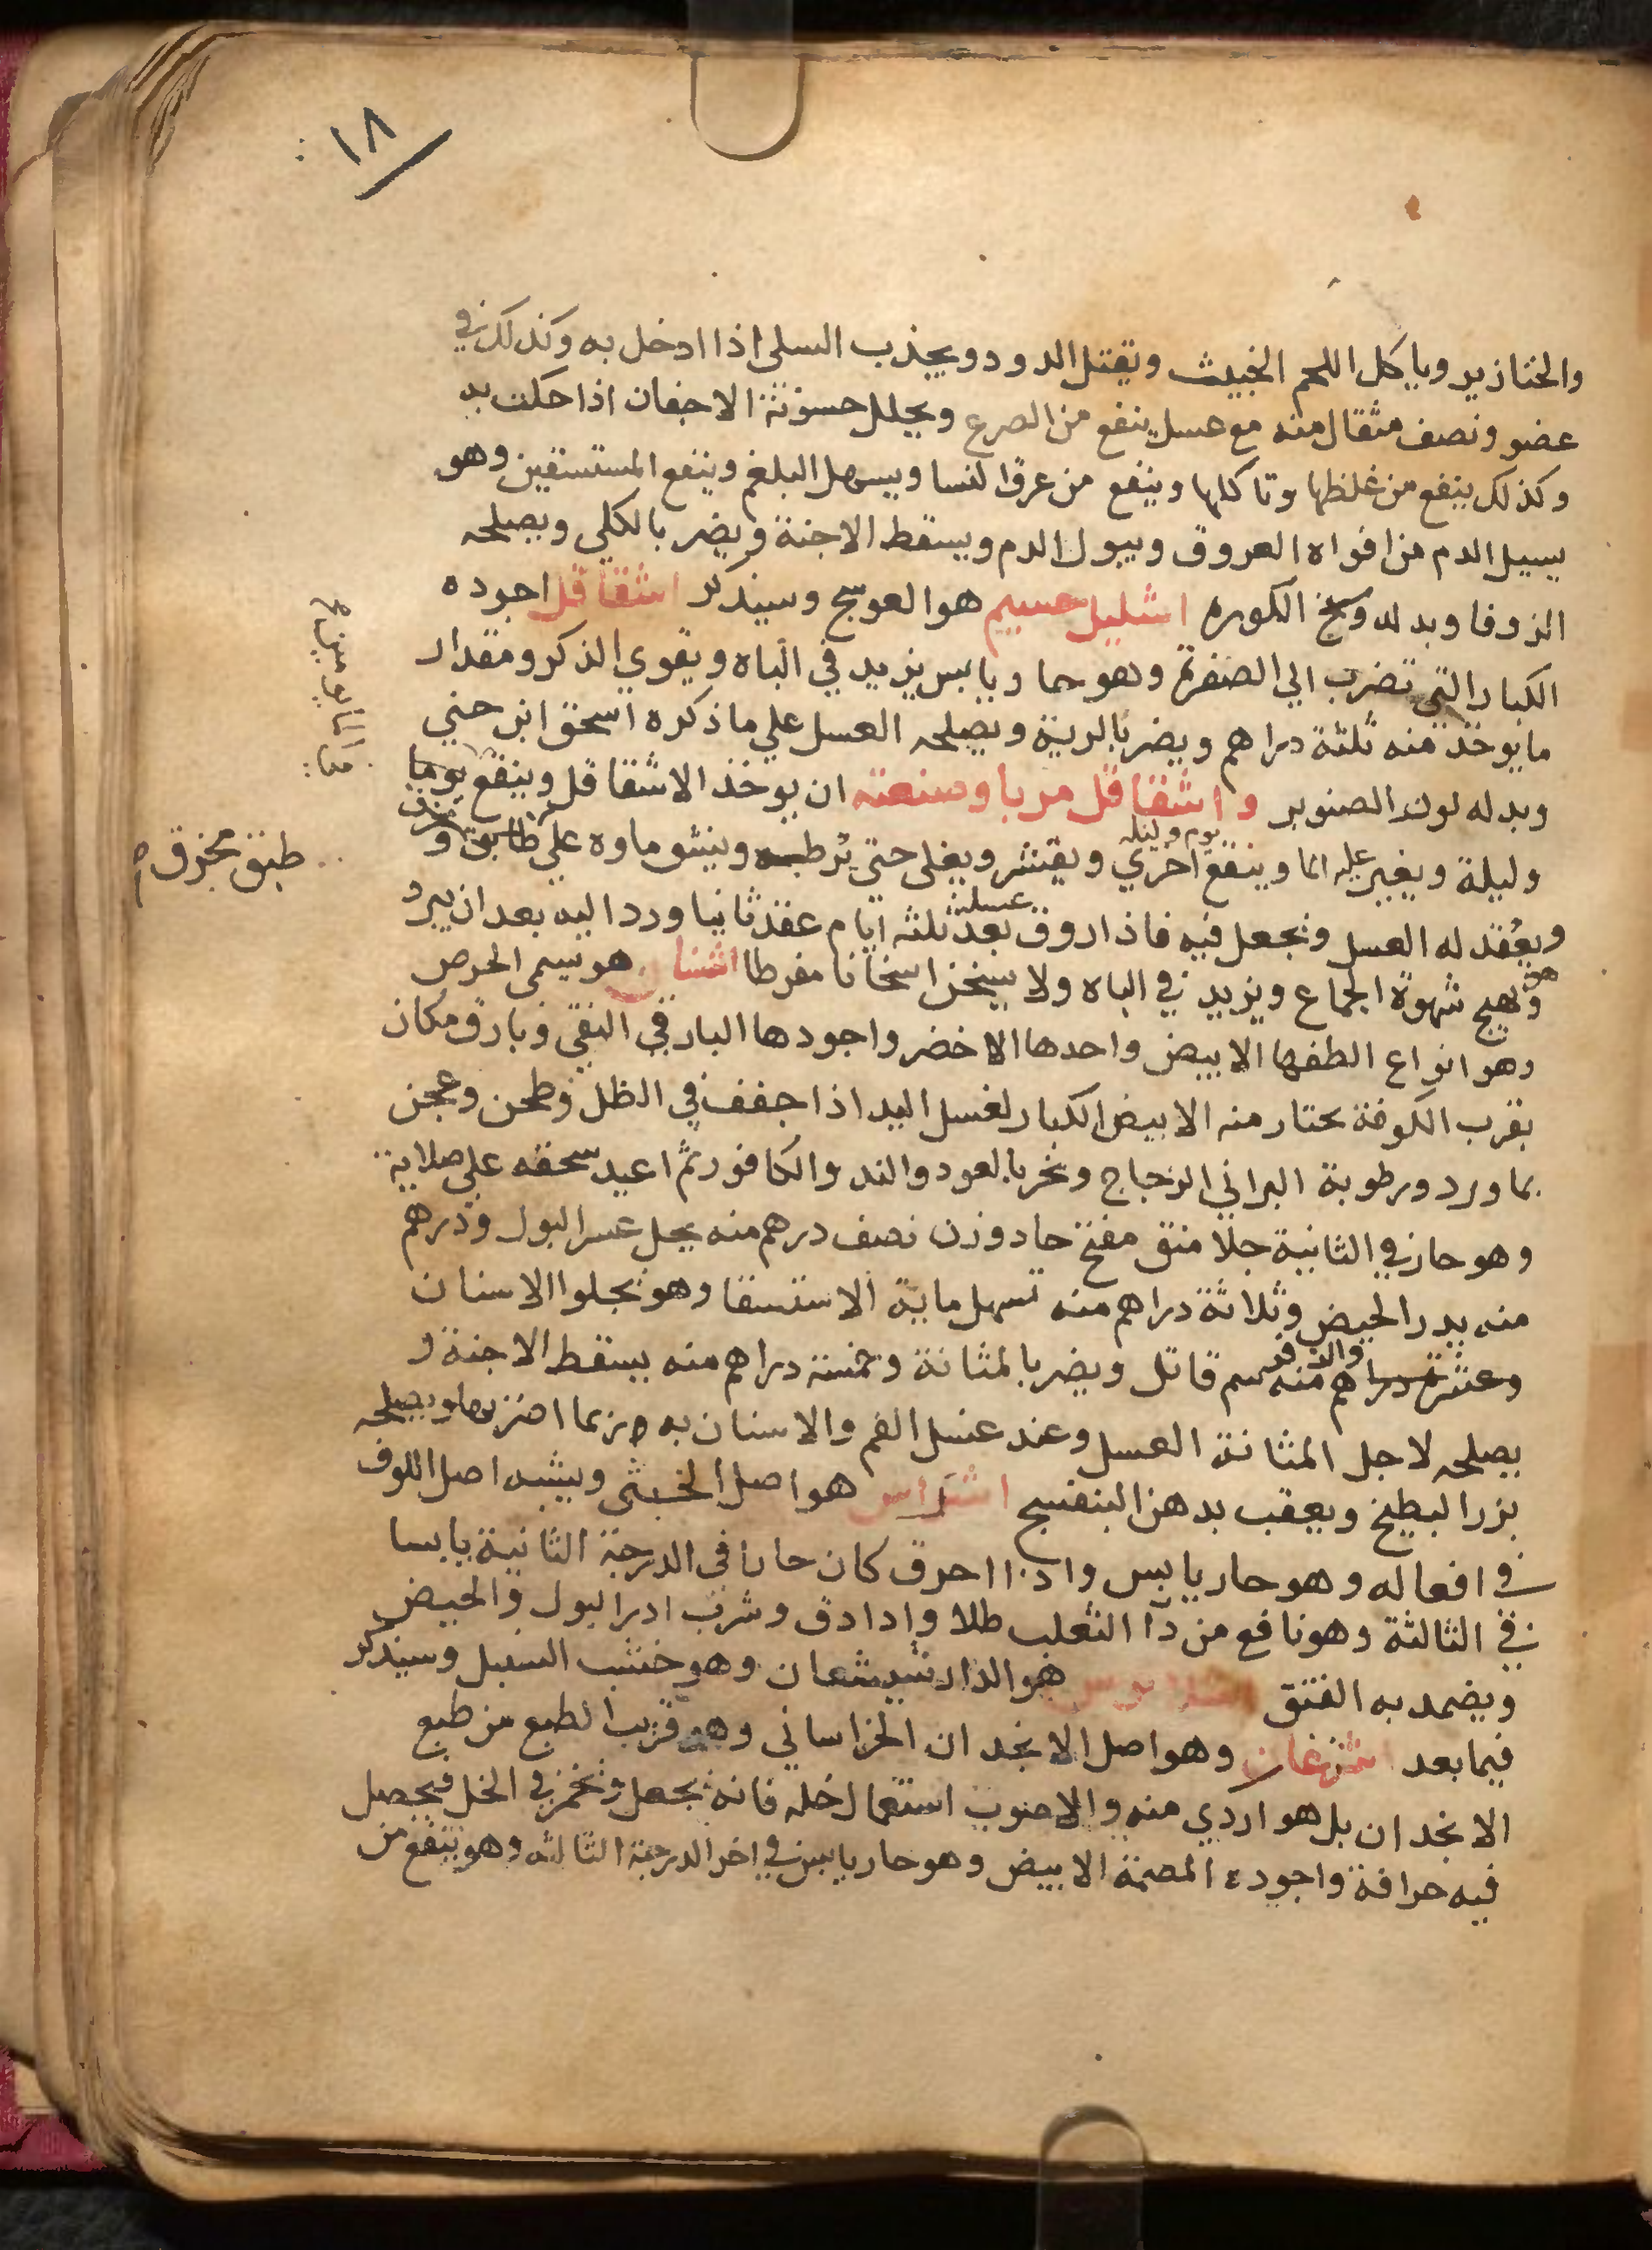 ١٨
والخنازير وياكل اللحم الخبيث ويقتل الدود ويجذب السلى اذا ادخل به وكذلك في
عضو ونصف مثقال منه مع عسل ينفع من الصرع ويحلل حسونة الاجفان اذا حكت به
وكذلك ينفع من غلظها وتاكلها وينفع من عرق النسا ويسهل البلغم وينفع المستسقين وهو
يسيل الدم من افواه العروق ويبول الدم ويسقط الاجنة ويضر بالكلي ويصلحه
الزوفا وبدله وسخ الكوره اشليل حسيم هو العوسج وسيذكر اشقاقل اجوده
الكبار التي تضرب الي الصفرة وهو حما ويابس يزيد في الباه ويقوي الذكر ومقدار
ما يوخذ منه ثلثة دراهم ويضر بالرية ويصلحه العسل علي ما ذكره اسحق ابن حني
وبدله لوز الصنوبر واشقاقل مربا وصنعته ان يوخذ الاشقاقل وينقع يوما
وليلة ويغير عليه الما وينقع اخري يوم وليلة ويقشر ويغلى حتي يرطب وينشو ماوه علي طابق و
طبق مخزق صح
ويعقد له العسل ويجعل فيه فاذا روق عسله بعد ثلثه ايام عقد ثانيا ورد اليه بعد ان يبرد
وهو يهيج شهوة الجماع ويزيد في الباه ولا يسخن اسخانا مفرطا اشنان هو سمي الحرص
وهو انواع الطفها الابيض واحدها الاخضر واجودها البارقي النقي وبارق مكان
بقرب الكوفة يختار منه الابيض الكبار لغسل اليد اذا جفف في الظل وطحن وعجن
بماورد ورطوبة البراني الزجاج وبخر بالعود والند والكافور ثم اعيد سحقه علي صلابة
وهو حار في الثانية جلا منق مفتح حاد وزن نصف درهم منه يحل عسر البول ودرهم
منه يدر الحيض وثلاثة دراهم منه تسهل ماية الاستسقا وهو يجلوا الاسنان
وعشرة دراهم منه سم قاتل ويضر بالمثانة وخمسة دراهم منه يسقط الاجنة و
يصلحه لاجل المثانة العسل وعند غسل الفم والاسنان به فربما اضر بها ويصلحه
بزر البطيخ ويعقب بدهن البنفسج اشراس هو اصل الخنثى ويشبه اصل اللوف
في افعاله وهو حار يابس واذا احرق كان حارا في الدرجة الثانية يابسا
في الثالثة وهو نافع من دآ الثعلب طلا واذا دق وشرب ادر البول والحيض
ويضمد به الفتق هو الدارشيشعان وهو خشب السبل وسيذكر
فيما بعد اشترغان وهو اصل الانجدان الخراساني وهو قريب الطبع من طبع
الانجدان بل هو اردي منه والاصوب استعمال خله فانه يجعل ويخمر في الخل فيحصل
فيه حرافة واجوده المصمة الابيض وهو حار يابس في اخر الدرجة الثالثه وهو ينفع من